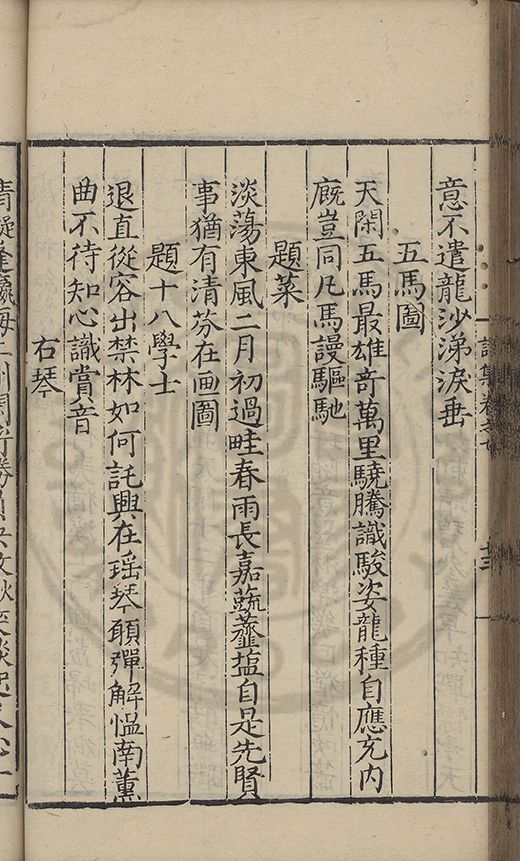 意不遣龍沙涕淚垂
五馬圖
天閑五馬最雄奇萬里驍騰識駿姿龍種自應充内
廐豈同凡馬謾驅馳
題菜
淡蕩東風二月初過畦春雨長嘉蔬虀塩自是先賢
事猶有清芬在画圖
題十八學士
退直從容出禁林如何託興在瑶琴願彈解愠南薫
曲不待知心識賞音
右琴